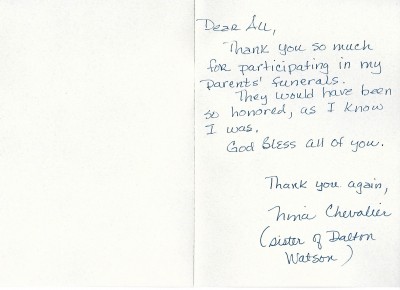 Dear All,
Thank you so much
for participating in my
parents' funerals.
They would have been
so honored, as I know
I was.
God Bless all of you.
Thank you again,
Nina Chevalier
(sister of Dalton
Watson)